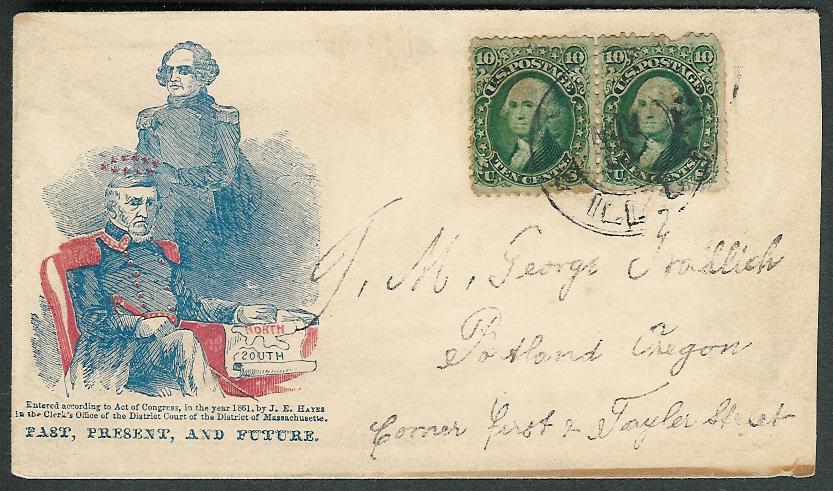 10 U.S. POSTAGE 10
U TEN CENTS. S
10 U.S. POSTAGE 10
U TEN CENTS. S
ILL
NORTH
SOUTH
J. M. George Frohlich
Portland Oregon
Corner first & Tayler Street
Entered according to Act of Congress, in the year 1861, by J. E. HAYES
in the Clerk's Office of the District Court of the District of Massachusetts.
PAST, PRESENT, AND FUTURE.